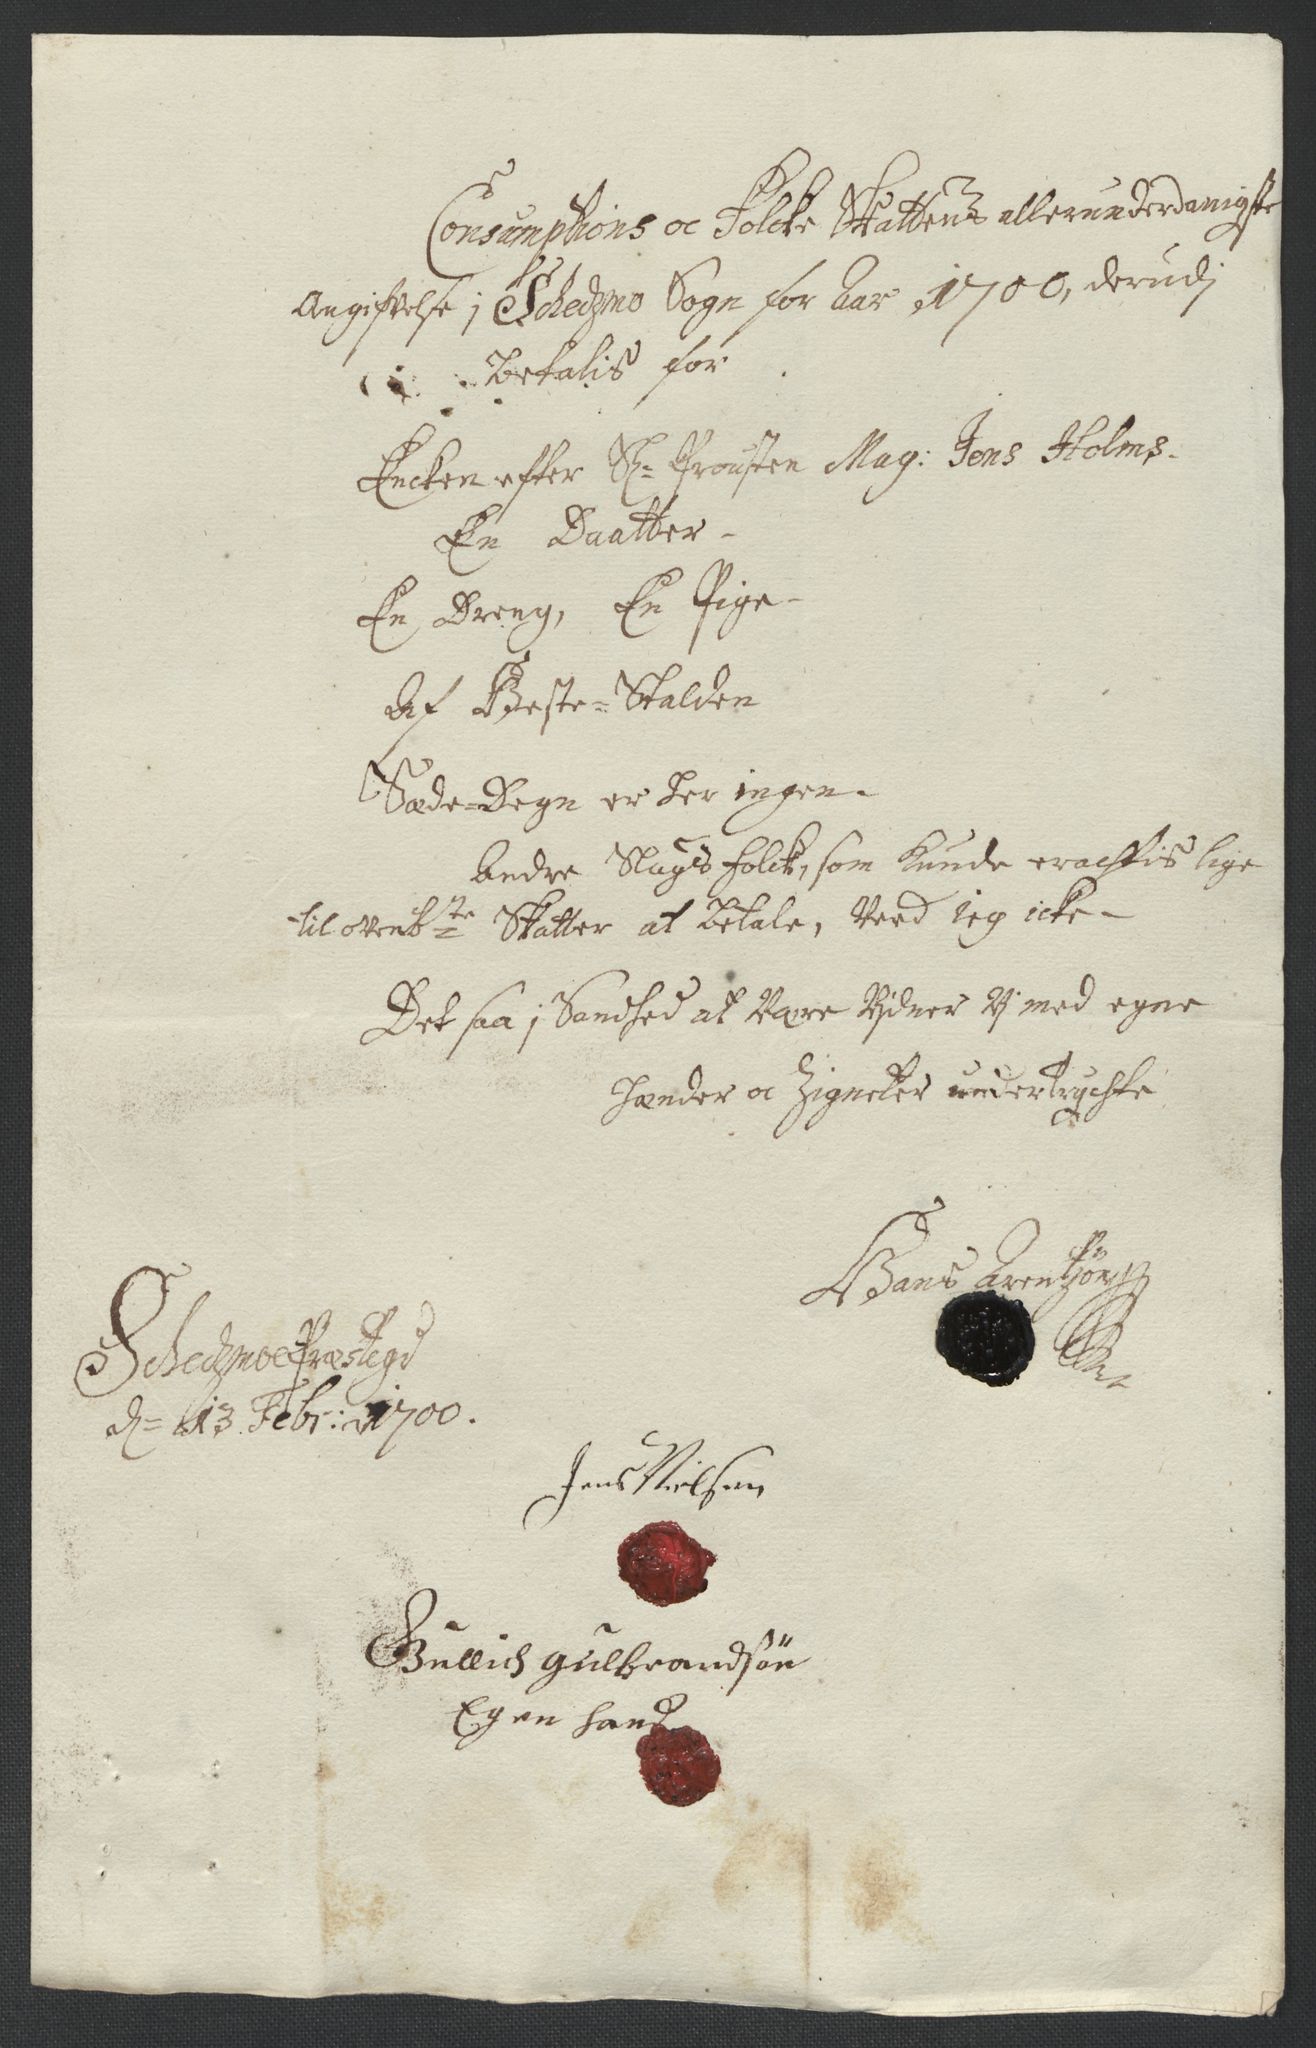 Consumptions oc Folcke Skattens allerunderdanigste
Angiffvelse j Schedzmo Sogn for Aar 1700, derudj
betalis for
Encken efter Sl: Prousten Mag: Jens Holms-
En Daatter-
En Dreng, En Pige-
Af Heste-Stalden
Sæde-Degn er her ingen.
Andre Slags folck, som kunde eractis lige
til ovenb:te Skatter at betale, Veed ieg icke-
Det saa j Sandhed at Være Vidner Vj med egne
hænder oc Zigneter undertrychte
Hans Arentzøn
Schedzmoe Præstegd
d: 13 Febr: 1700.
Jens Nielsen
Gullich gulbrandsøn
Egen hand